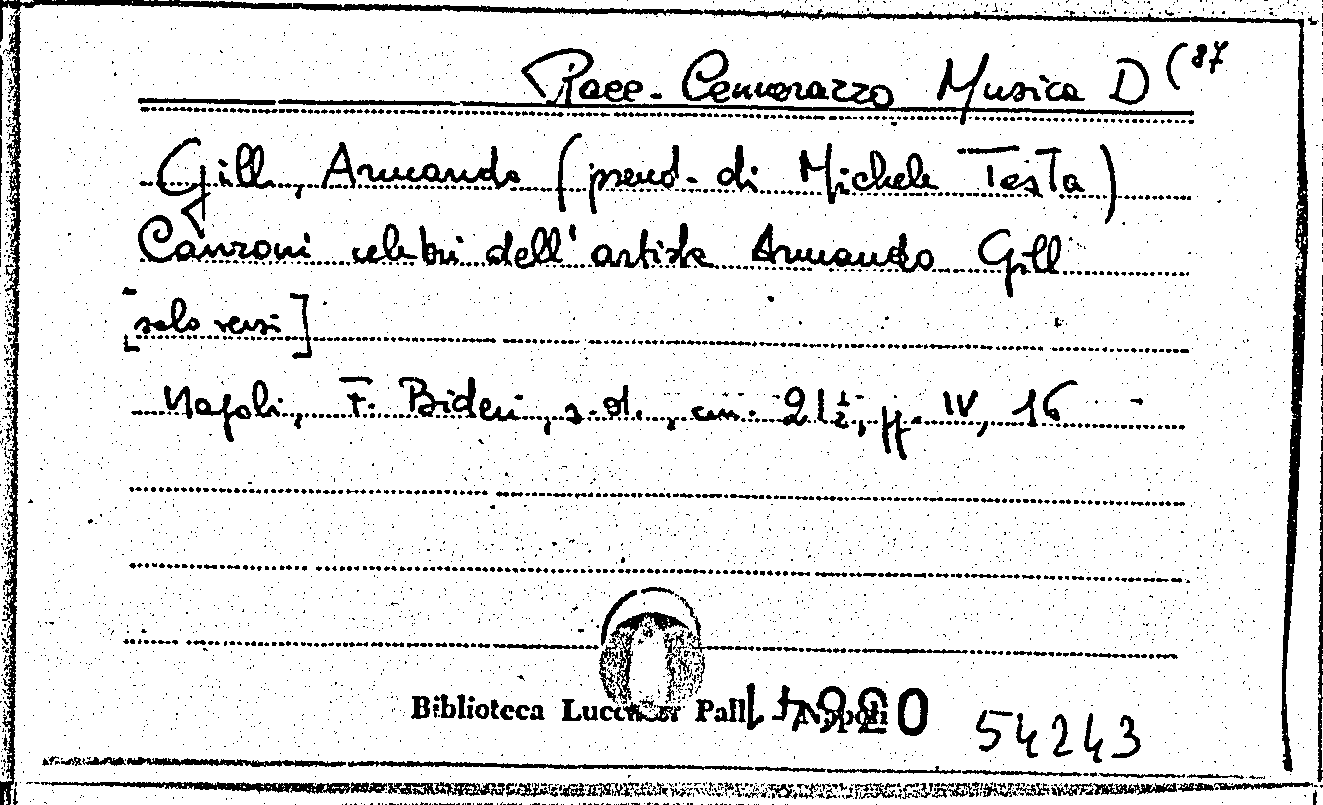 Racc. Cennerazzo Musica D (87
Gill, Armando (pseud. di Michele Testa)
Canzoni celebri dell'artista Armando Gill
[solo versi]
Napoli, F. Bideri, s.d., cm. 21½, pp. IV, 16
Biblioteca Lucchesi Palli Napoli
54243